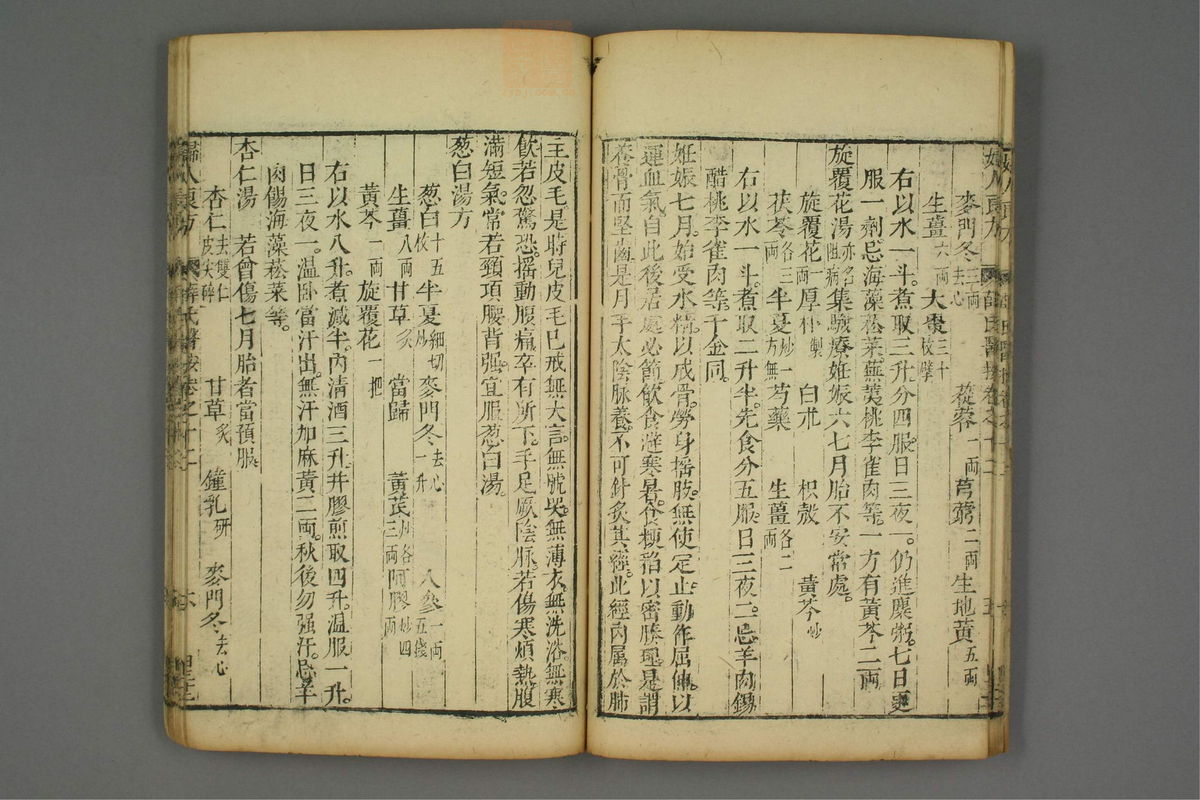 婦人良方
麥門冬三兩去心 葳蕤一兩 芎藭二兩 生地黃五兩
生薑六兩 大棗三十枚擘
右以水一斗煮取三升分四服日三夜一仍進糜粥七日更
服一劑忌海藻菘菜蕪荑桃李雀肉等一方有黃芩二兩
旋覆花湯亦名阻病集驗療姙娠六七月胎不安常處
旋覆花一兩 厚朴製 白朮 枳殼 黃芩炒
茯苓各三兩 半夏炒一方無 芍藥 生薑各二兩
右以水一斗煮取二升半先食分五服日三夜二忌羊肉餳
醋桃李雀肉等千金同
姙娠七月始受水精以成骨勞身搖肢無使定止動作屈伸以
運血氣自此後居處必節飲食避寒暑食粳稻以密腠理是謂
養骨而堅齒是月手太陰脈養不可針灸其經此經內屬於肺
主皮毛是時兒皮毛已成無大言無號哭無薄衣無洗浴無寒
飲若忽驚恐搖動腹痛卒有所下手足厥陰脈若傷寒煩熱腹
滿短氣常若頸項腰背强宜服葱白湯
葱白湯方
葱白十五枚 半夏細切炒 麥門冬去心一升 人參一兩五錢
生薑八兩 甘草炙 當歸 黃芪炒各三兩 阿膠炒四兩
黃芩一兩 旋覆花一把
右以水八升煮減半內清酒三升并膠煎取四升溫服一升
日三夜一溫臥當汗出無汗加麻黃二兩秋後勿强汗忌羊
肉餳海藻菘菜等
杏仁湯 若曾傷七月胎者當預服
杏仁去雙仁皮尖碎 甘草炙 鐘乳研 麥門冬去心
婦人良方 薛氏醫按卷之十二 六